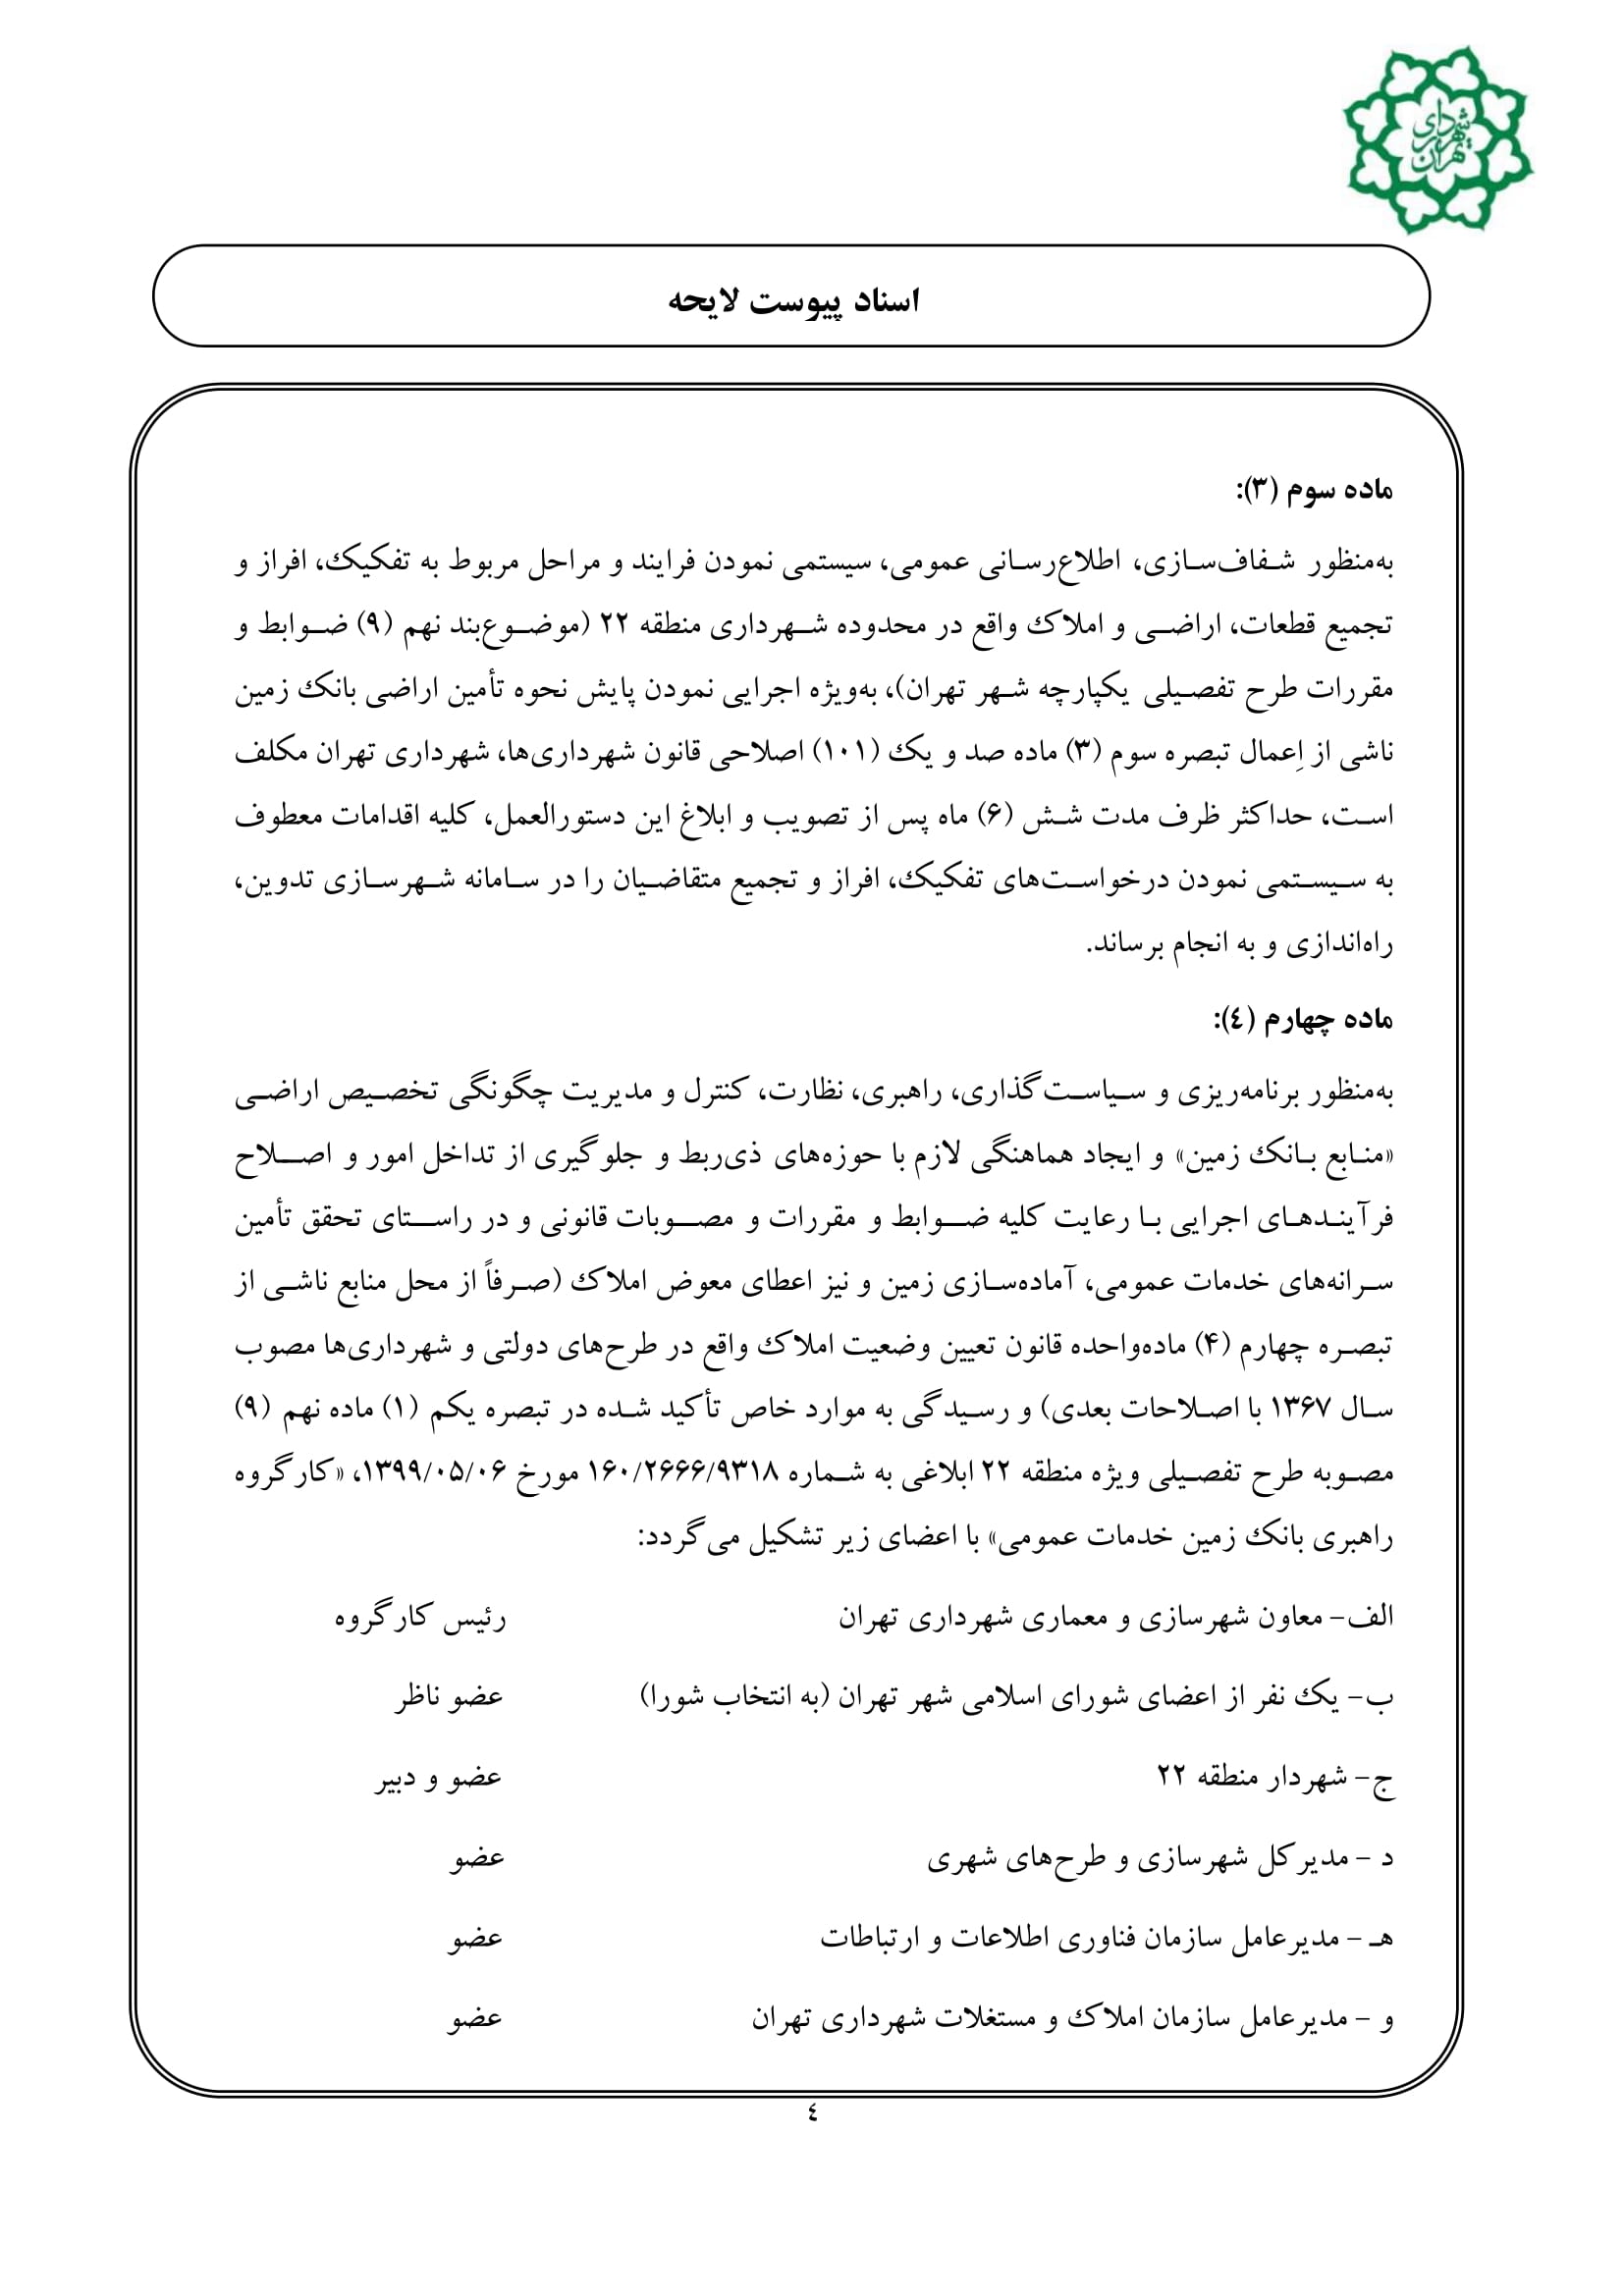 شهرداری
تهران
اسناد پیوست لایحه
ماده سوم (۳):
به‌منظور شفاف‌سازی، اطلاع‌رسانی عمومی، سیستمی نمودن فرایند و مراحل مربوط به تفکیک، افراز و
تجمیع قطعات، اراضی و املاک واقع در محدوده شهرداری منطقه ۲۲ (موضوع‌بند نهم (۹) ضوابط و
مقررات طرح تفصیلی یکپارچه شهر تهران)، به‌ویژه اجرایی نمودن پایش نحوه تأمین اراضی بانک زمین
ناشی از اِعمال تبصره سوم (۳) ماده صد و یک (۱۰۱) اصلاحی قانون شهرداری‌ها، شهرداری تهران مکلف
است، حداکثر ظرف مدت شش (۶) ماه پس از تصویب و ابلاغ این دستورالعمل، کلیه اقدامات معطوف
به سیستمی نمودن درخواست‌های تفکیک، افراز و تجمیع متقاضیان را در سامانه شهرسازی تدوین،
راه‌اندازی و به انجام برساند.
ماده چهارم (٤):
به‌منظور برنامه‌ریزی و سیاست‌گذاری، راهبری، نظارت، کنترل و مدیریت چگونگی تخصیص اراضی
«منابع بانک زمین» و ایجاد هماهنگی لازم با حوزه‌های ذی‌ربط و جلوگیری از تداخل امور و اصلاح
فرآیندهای اجرایی با رعایت کلیه ضوابط و مقررات و مصوبات قانونی و در راستای تحقق تأمین
سرانه‌های خدمات عمومی، آماده‌سازی زمین و نیز اعطای معوض املاک (صرفاً از محل منابع ناشی از
تبصره چهارم (۴) ماده‌واحده قانون تعیین وضعیت املاک واقع در طرح‌های دولتی و شهرداری‌ها مصوب
سال ۱۳۶۷ با اصلاحات بعدی) و رسیدگی به موارد خاص تأکید شده در تبصره یکم (۱) ماده نهم (۹)
مصوبه طرح تفصیلی ویژه منطقه ۲۲ ابلاغی به شماره ۱۶۰/۲۶۶۶/۹۳۱۸ مورخ ۱۳۹۹/۰۵/۰۶، «کارگروه
راهبری بانک زمین خدمات عمومی» با اعضای زیر تشکیل می‌گردد:
الف- معاون شهرسازی و معماری شهرداری تهران رئیس کارگروه
ب- یک نفر از اعضای شورای اسلامی شهر تهران (به انتخاب شورا) عضو ناظر
ج- شهردار منطقه ۲۲ عضو و دبیر
د - مدیرکل شهرسازی و طرح‌های شهری عضو
هـ - مدیرعامل سازمان فناوری اطلاعات و ارتباطات عضو
و - مدیرعامل سازمان املاک و مستغلات شهرداری تهران عضو
٤